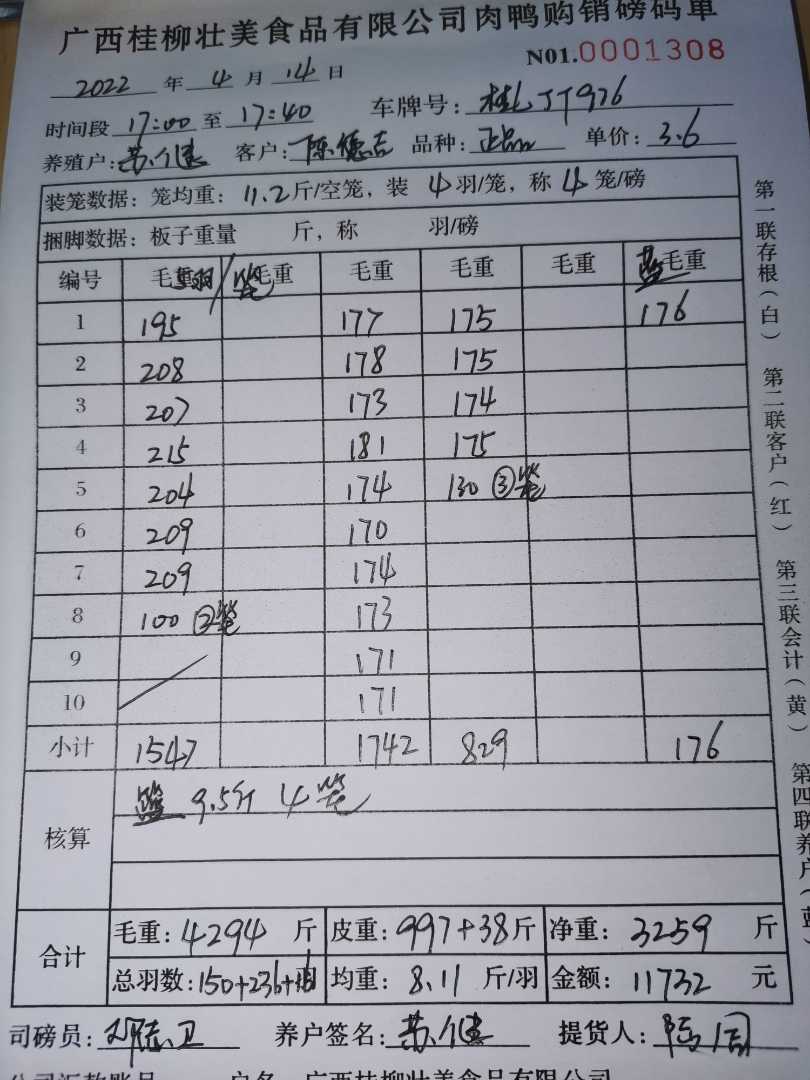 广西桂柳壮美食品有限公司肉鸭购销磅码单
N01.0001308
2022 年 4 月 14 日
时间段 17:00 至 17:40 车牌号: 桂 JT976
养殖户: 苏 健 客户: 陈德吉 品种: 正品 单价: 3.6
装笼数据: 笼均重: 11.2 斤/空笼, 装 4 羽/笼, 称 4 笼/磅
捆脚数据: 板子重量 斤, 称 羽/磅
编号 毛重 羽/笼 毛重 毛重 毛重 毛重 蓝 毛重
1 195 177 175 176
2 208 178 175
3 207 173 174
4 215 181 175
5 204 174 130 ③笼
6 209 170
7 209 174
8 100 ②笼 173
9 171
10 171
小计 1547 1742 829 176
核算 篮 9.5斤 4笼
合计 毛重: 4294 斤 皮重: 997+38 斤 净重: 3259 斤
总羽数: 150+236+16 羽 均重: 8.11 斤/羽 金额: 11732 元
司磅员: 卫 养户签名: 苏 健 提货人:
公司汇款账号 户名 广西桂柳壮美食品有限公司
第一联存根(白) 第二联客户(红) 第三联会计(黄) 第四联养户(蓝)